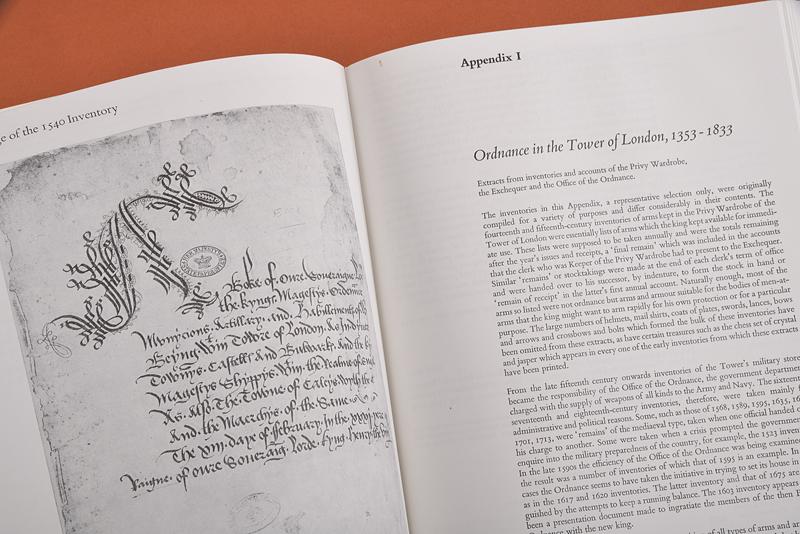 ge of the 1540 Inventory
A Boke of Oure Soueraigne
the Kyngs Magestys Ordinnce
Munycions Artillary And Habillements of
Beyng Wtin Towre of London As In dyuers
Townys Castells And Bulwarks And the
Magestys Shypps Wtin the realme of
As Also The Towne of Caleys Wyth the
And the Marchys of the Same
The viijth daye of February In the
Raigne of oure Souerang Lorde Kyng Henry the
Appendix I
Ordnance in the Tower of London, 1353-1833
Extracts from inventories and accounts of the Privy Wardrobe,
the Exchequer and the Office of the Ordnance.
The inventories in this Appendix, a representative selection only, were originally
compiled for a variety of purposes and differ considerably in their contents. The
fourteenth and fifteenth-century inventories of arms kept in the Privy Wardrobe of the
Tower of London were essentially lists of arms which the king kept available for immedi-
ate use. These lists were supposed to be taken annually and were the totals remaining
after the year's issues and receipts, a 'final remain' which was included in the accounts
that the clerk who was Keeper of the Privy Wardrobe had to present to the Exchequer.
Similar 'remains' or stocktakings were made at the end of each clerk's term of office
and were handed over to his successor, by indenture, to form the stock in hand or
'remain of receipt' in the latter's first annual account. Naturally enough, most of the
arms so listed were not ordnance but arms and armour suitable for the bodies of men-at-
arms that the king might want to arm rapidly for his own protection or for a particular
purpose. The large numbers of helmets, mail shirts, coats of plates, swords, lances, bows
and arrows and crossbows and bolts which formed the bulk of these inventories have
been omitted from these extracts, as have certain treasures such as the chess set of crystal
and jasper which appears in every one of the early inventories from which these extracts
have been printed.
From the late fifteenth century onwards inventories of the Tower's military store
became the responsibility of the Office of the Ordnance, the government departmen
charged with the supply of weapons of all kinds to the Army and Navy. The sixteen
seventeenth and eighteenth-century inventories, therefore, were taken mainly f
administrative and political reasons. Some, such as those of 1568, 1589, 1595, 1635, 16
1701, 1713, were 'remains' of the mediaeval type, taken when one official handed o
his charge to another. Some were taken when a crisis prompted the governme
enquire into the military preparedness of the country, for example, the 1523 inven
In the late 1590s the efficiency of the Office of the Ordnance was being examined
the result was a number of inventories of which that of 1595 is an example. In
cases the Ordnance seems to have taken the initiative in trying to set its house in
as in the 1617 and 1620 inventories. The latter inventory and that of 1675 are
guished by the attempts to keep a running balance. The 1603 inventory appears
been a presentation document made to ingratiate the members of the then
Ordnance with the new king.
of all types of arms and ar